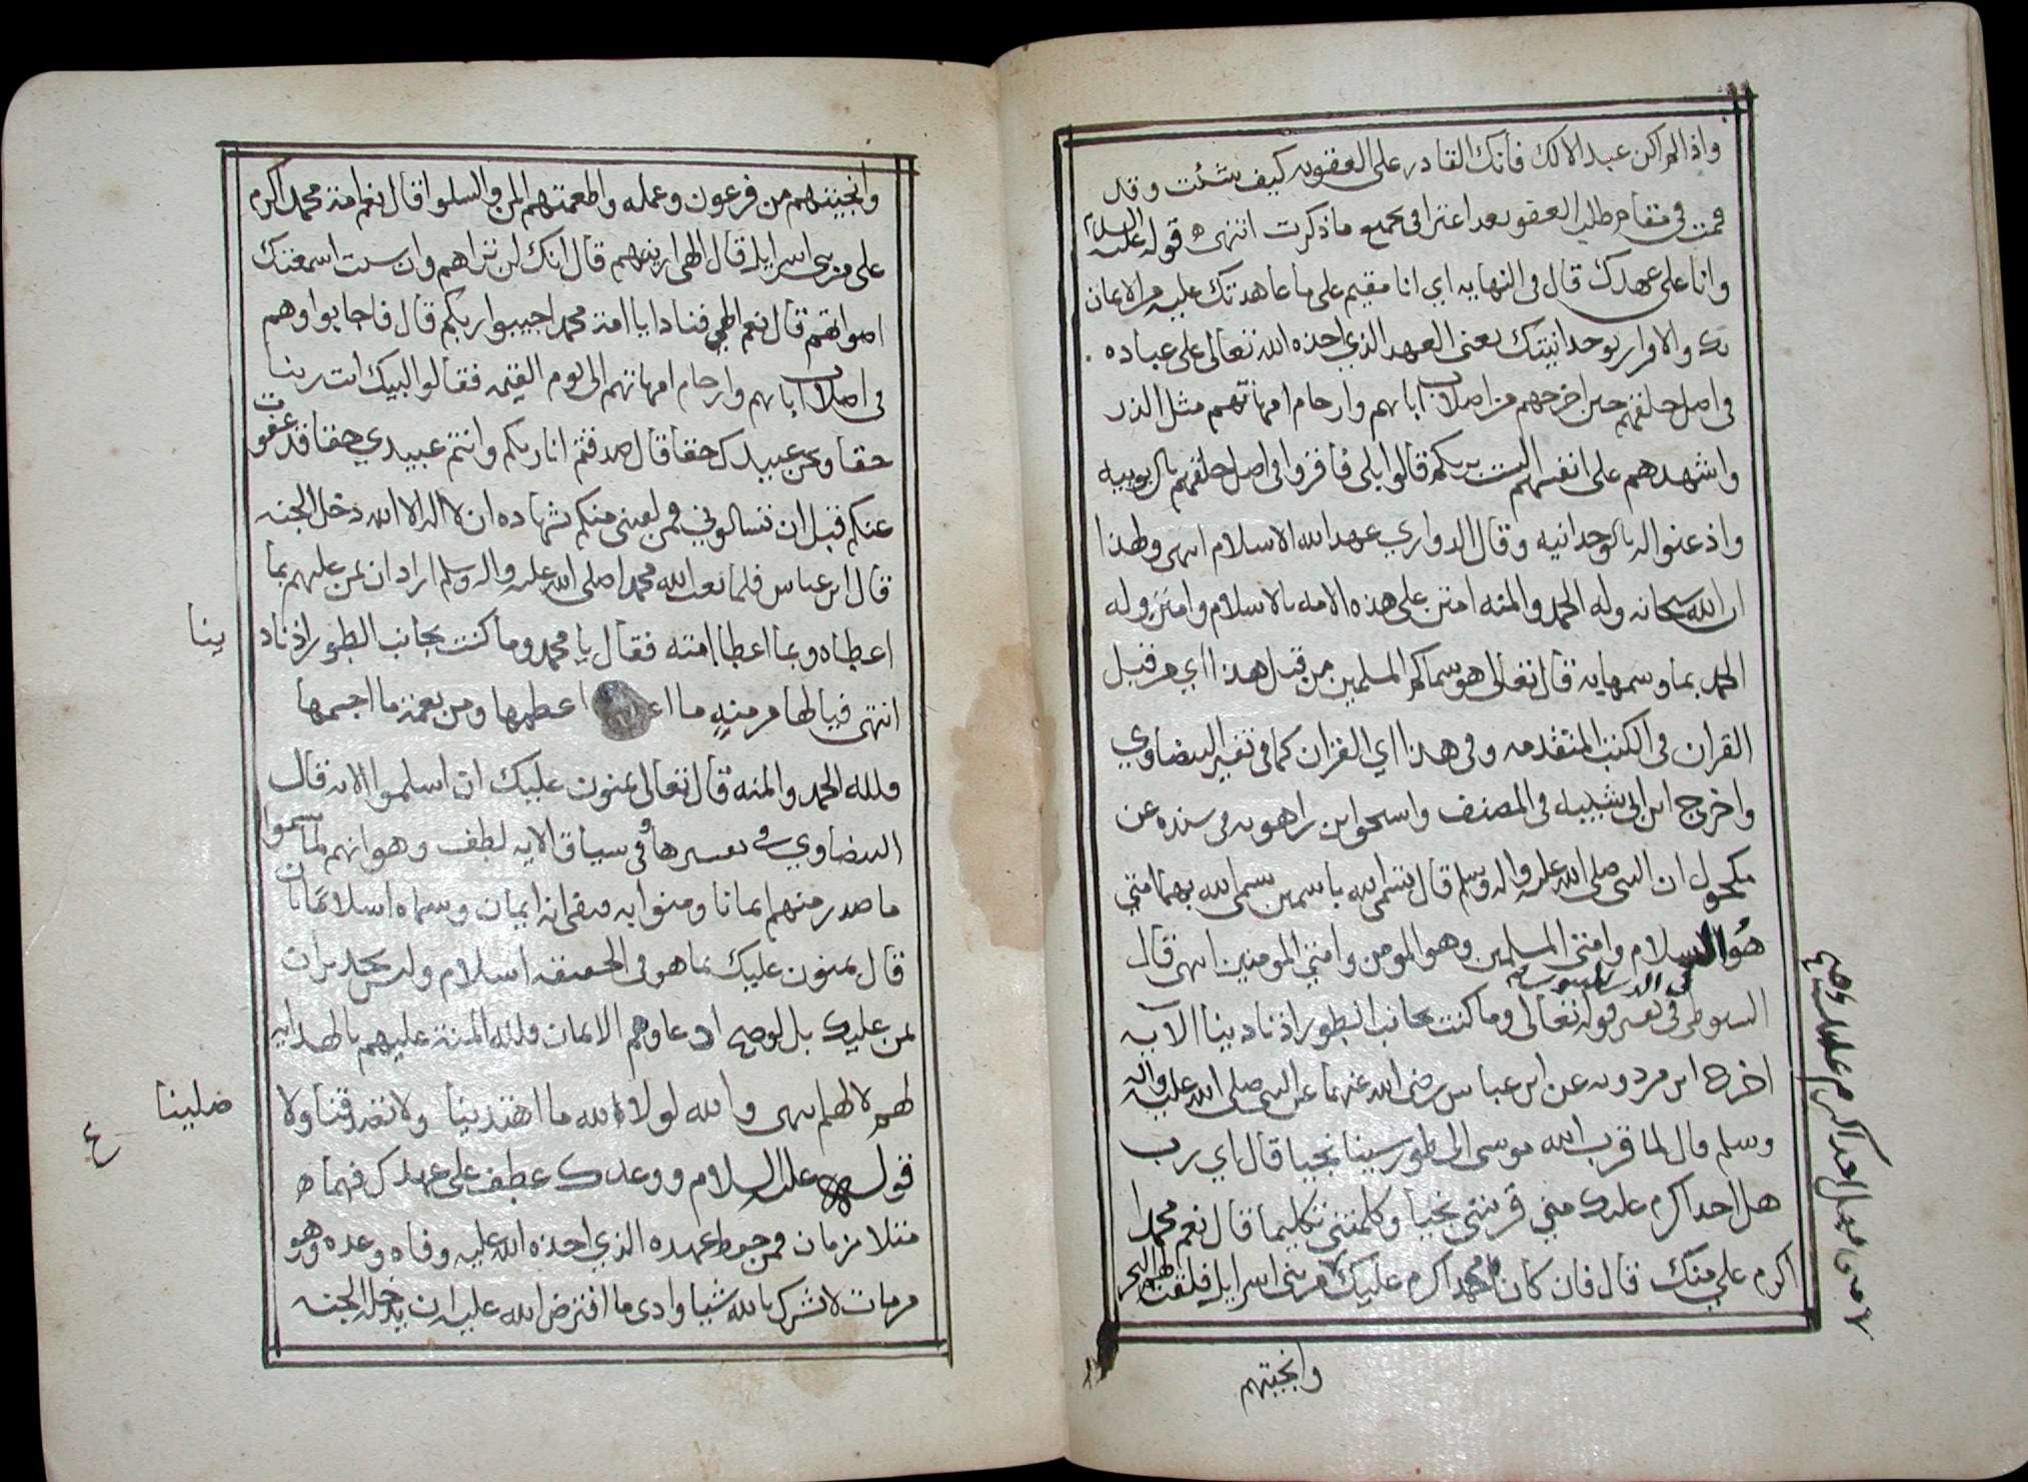 واذا لم اكن عبدا الا لك فانك القادر على العقوبه كيف شئت وقد
قمت في مقام طلب العفو بعد اعترافي بجميع ما ذكرت انتهى قوله عليه السلام
وانا على عهدك قال في النهايه اي انا مقيم على ما عاهدتك عليه من الايمان
بك والاقرار بوحدانيتك يعنى العهد الذي اخذه الله تعالى على عباده
في اصل خلقتهم حين اخرجهم من اصلاب ابايهم وارحام امهاتهم مثل الذر
واشهدهم على انفسهم الست بربكم قالوا بلى فاقروا في اصل خلقهم بالربوبيه
واذعنوا له بالوحدانيه وقال الدواري عهد الله الاسلام انتهى ولهذا
ان الله سبحانه وله الحمد والمنه امتن على هذه الامه بالاسلام وامتن وله
الحمد بما وسمها به قال تعالى هو سماكم المسلمين من قبل هذا اي من قبل
القران في الكتب المتقدمه وفي هذا اي القران كما في تفسير البيضاوي
واخرج ابن ابي شيبه في المصنف واسحق ابن راهويه في مسنده عن
مكحول ان النبي صلى الله عليه واله وسلم قال تسمى الله باسمين سمى الله بهما امتي
هو السلام وامتي المسلمين وهو المومن وامتي المومنين انتهى قال
السيوطي في تفسير قوله تعالى وما كنت بجانب الطور اذ نادينا الآيه
اخرج ابن مردويه عن ابن عباس رضي الله عنهما عن النبي صلى الله عليه واله
وسلم قال لما قرب الله موسى الى طور سينا نجيا قال اي رب
هل احد اكرم عليك مني قربتني نجيا وكلمتني تكليما قال نعم محمد
اكرم علي منك قال فان كان محمد اكرم عليك من بني اسرايل فلقت لهم البحر
وانجيتهم
وانجيتهم من فرعون وعمله واطعمتهم المن والسلوا قال نعم امة محمد اكرم
علي من بني اسرايل قال الهي ارينهم قال انك لن تراهم وان شئت اسمعتك
اصواتهم قال نعم الهي فنادا يا امة محمد اجيبوا ربكم قال فاجابوا وهم
في اصلاب ابايهم وارحام امهاتهم الى يوم القيمه فقالوا لبيك انت ربنا
حقا ونحن عبيدك حقا قال صدقتم انا ربكم وانتم عبيدي حقا قد عفوت
عنكم قبل ان تسالوني فمن لقيني منكم بشهاده ان لا اله الا الله دخل الجنه
قال ابن عباس فلما بعث الله محمدا صلى الله عليه واله وسلم اراد ان يمن عليهم بما
اعطاه وبما اعطا امته فقال يا محمد وما كنت بجانب الطور اذ ناد
ينا
انتهى فيا لها من منه ما اعظمها ومن نعمة ما اجسمها
فلله الحمد والمنه قال تعالى يمنون عليك ان اسلموا الايه قال
البيضاوي في تفسيرها وفي سياق الايه لطف وهو انهم لما سموا
ما صدر منهم ايمانا ومنوا به نفى انه ايمان وسماه اسلاما بان
قال يمنون عليك بما هو في الحقيقه اسلام وليس بجدير ان
يمن عليك بل لو صح ادعاوهم الايمان فلله المنة عليهم بالهدايه
لهم لا لهم انتهى والله لولا الله ما اهتدينا ولا تصدقنا ولا
ضلينا
قوله عليه السلام ووعدك عطف على عهدك فهما
متلازمان فمن حفظ عهده الذي اخذه الله عليه وفاه وعده وهو
من مات لا يشرك بالله شيا وادى ما افترض الله عليه ان يدخله الجنه